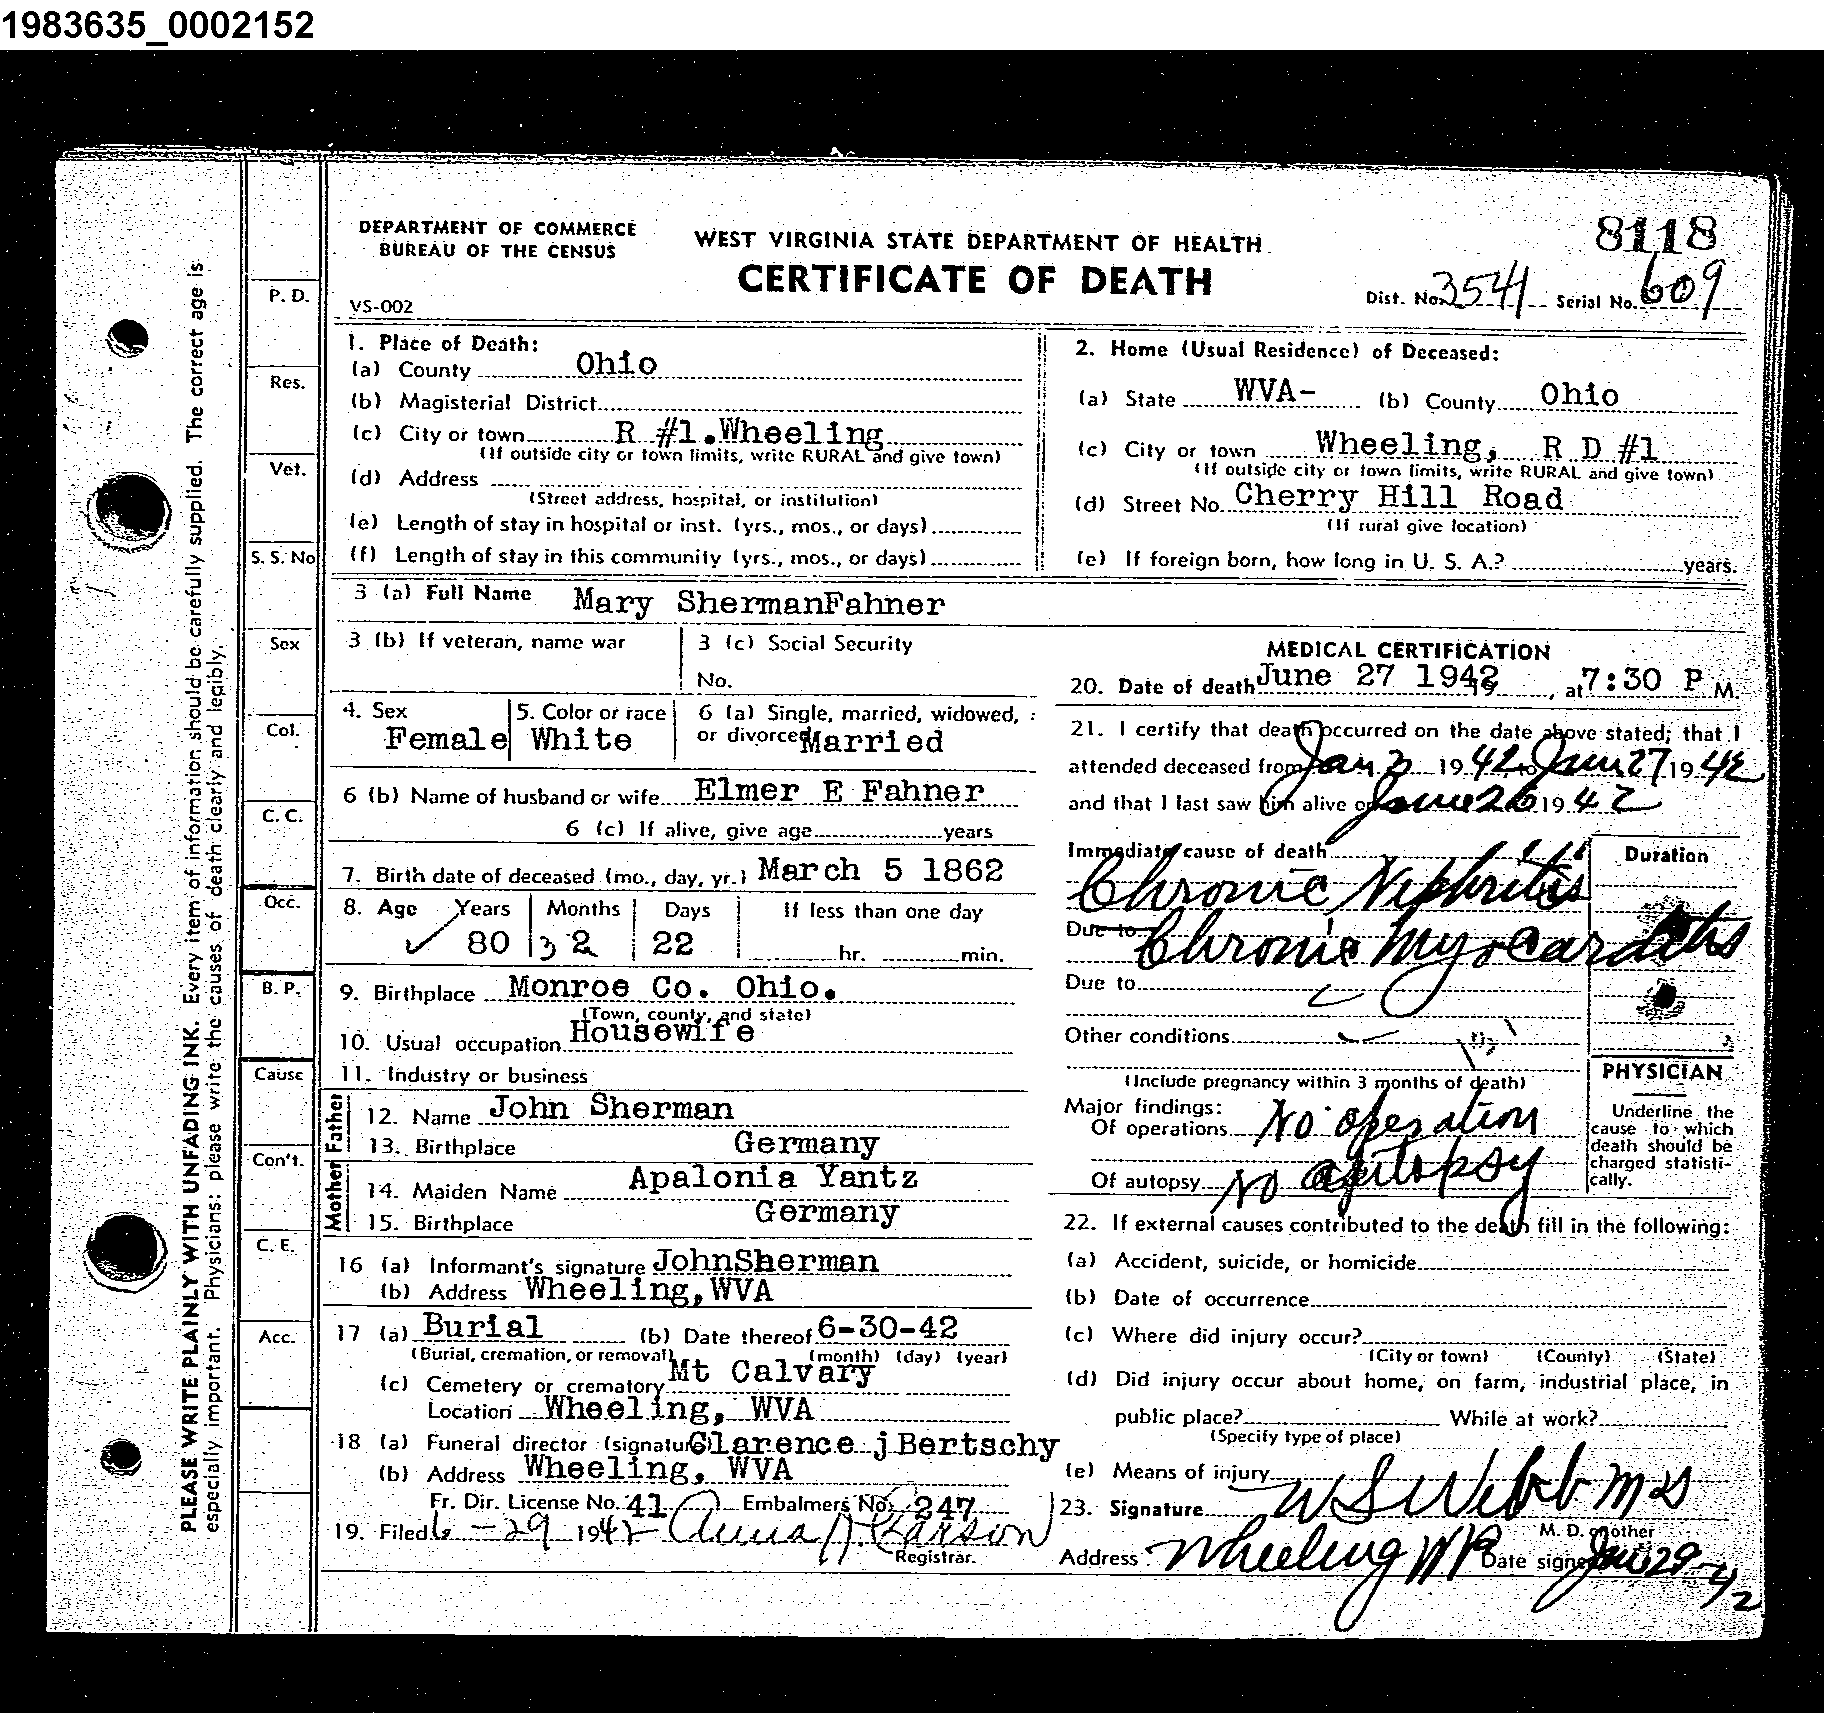 1983635_0002152
8118
DEPARTMENT OF COMMERCE
BUREAU OF THE CENSUS
WEST VIRGINIA STATE DEPARTMENT OF HEALTH
CERTIFICATE OF DEATH
VS-002
Dist. No. 3541 Serial No. 609
PLEASE WRITE PLAINLY WITH UNFADING INK. Every item of information should be carefully supplied. The correct age is
especially important. Physicians: please write the causes of death clearly and legibly.
P. D.
Res.
Vet.
S. S. No
Sex
Col.
C. C.
Occ.
B. P.
Cause
Con't.
C. E.
Acc.
1. Place of Death:
(a) County Ohio
(b) Magisterial District
(c) City or town R #1.Wheeling
(If outside city or town limits, write RURAL and give town)
(d) Address
(Street address, hospital, or institution)
(e) Length of stay in hospital or inst. (yrs., mos., or days)
(f) Length of stay in this community (yrs., mos., or days)
2. Home (Usual Residence) of Deceased:
(a) State WVA- (b) County Ohio
(c) City or town Wheeling, R D #1
(If outside city or town limits, write RURAL and give town)
(d) Street No. Cherry Hill Road
(If rural give location)
(e) If foreign born, how long in U. S. A.? years.
3 (a) Full Name Mary ShermanFahner
3 (b) If veteran, name war
3 (c) Social Security
No.
4. Sex
Female
5. Color or race
White
6 (a) Single, married, widowed,
or divorced Married
6 (b) Name of husband or wife Elmer E Fahner
6 (c) If alive, give age years
7. Birth date of deceased (mo., day, yr.) March 5 1862
8. Age Years Months Days If less than one day
80 3 2 22 hr. min.
9. Birthplace Monroe Co. Ohio.
(Town, county, and state)
10. Usual occupation Housewife
11. Industry or business
Father
12. Name John Sherman
13. Birthplace Germany
Mother
14. Maiden Name Apalonia Yantz
15. Birthplace Germany
16 (a) Informant's signature JohnSherman
(b) Address Wheeling,WVA
17 (a) Burial (b) Date thereof 6-30-42
(Burial, cremation, or removal) (month) (day) (year)
(c) Cemetery or crematory Mt Calvary
Location Wheeling, WVA
18 (a) Funeral director (signature) Clarence j Bertschy
(b) Address Wheeling, WVA
Fr. Dir. License No. 41 Embalmers No. 247
19. Filed 6-29 1942 Anna
Registrar.
MEDICAL CERTIFICATION
20. Date of death June 27 1942 19, at 7:30 P M.
21. I certify that death occurred on the date above stated; that I
attended deceased from Jan 3 1942 to June 27 1942
and that I last saw him alive on June 26 1942
Immediate cause of death
Duration
Chronic Nephritis
Due to Chronic Myocarditis
Due to
Other conditions
(Include pregnancy within 3 months of death)
Major findings:
Of operations No operation
Of autopsy No autopsy
PHYSICIAN
Underline the
cause to which
death should be
charged statisti-
cally.
22. If external causes contributed to the death fill in the following:
(a) Accident, suicide, or homicide
(b) Date of occurrence
(c) Where did injury occur?
(City or town) (County) (State)
(d) Did injury occur about home, on farm, industrial place, in
public place? While at work?
(Specify type of place)
(e) Means of injury
23. Signature W S Webb MD
M. D. or other
Address Wheeling WVa Date signed June 29-42